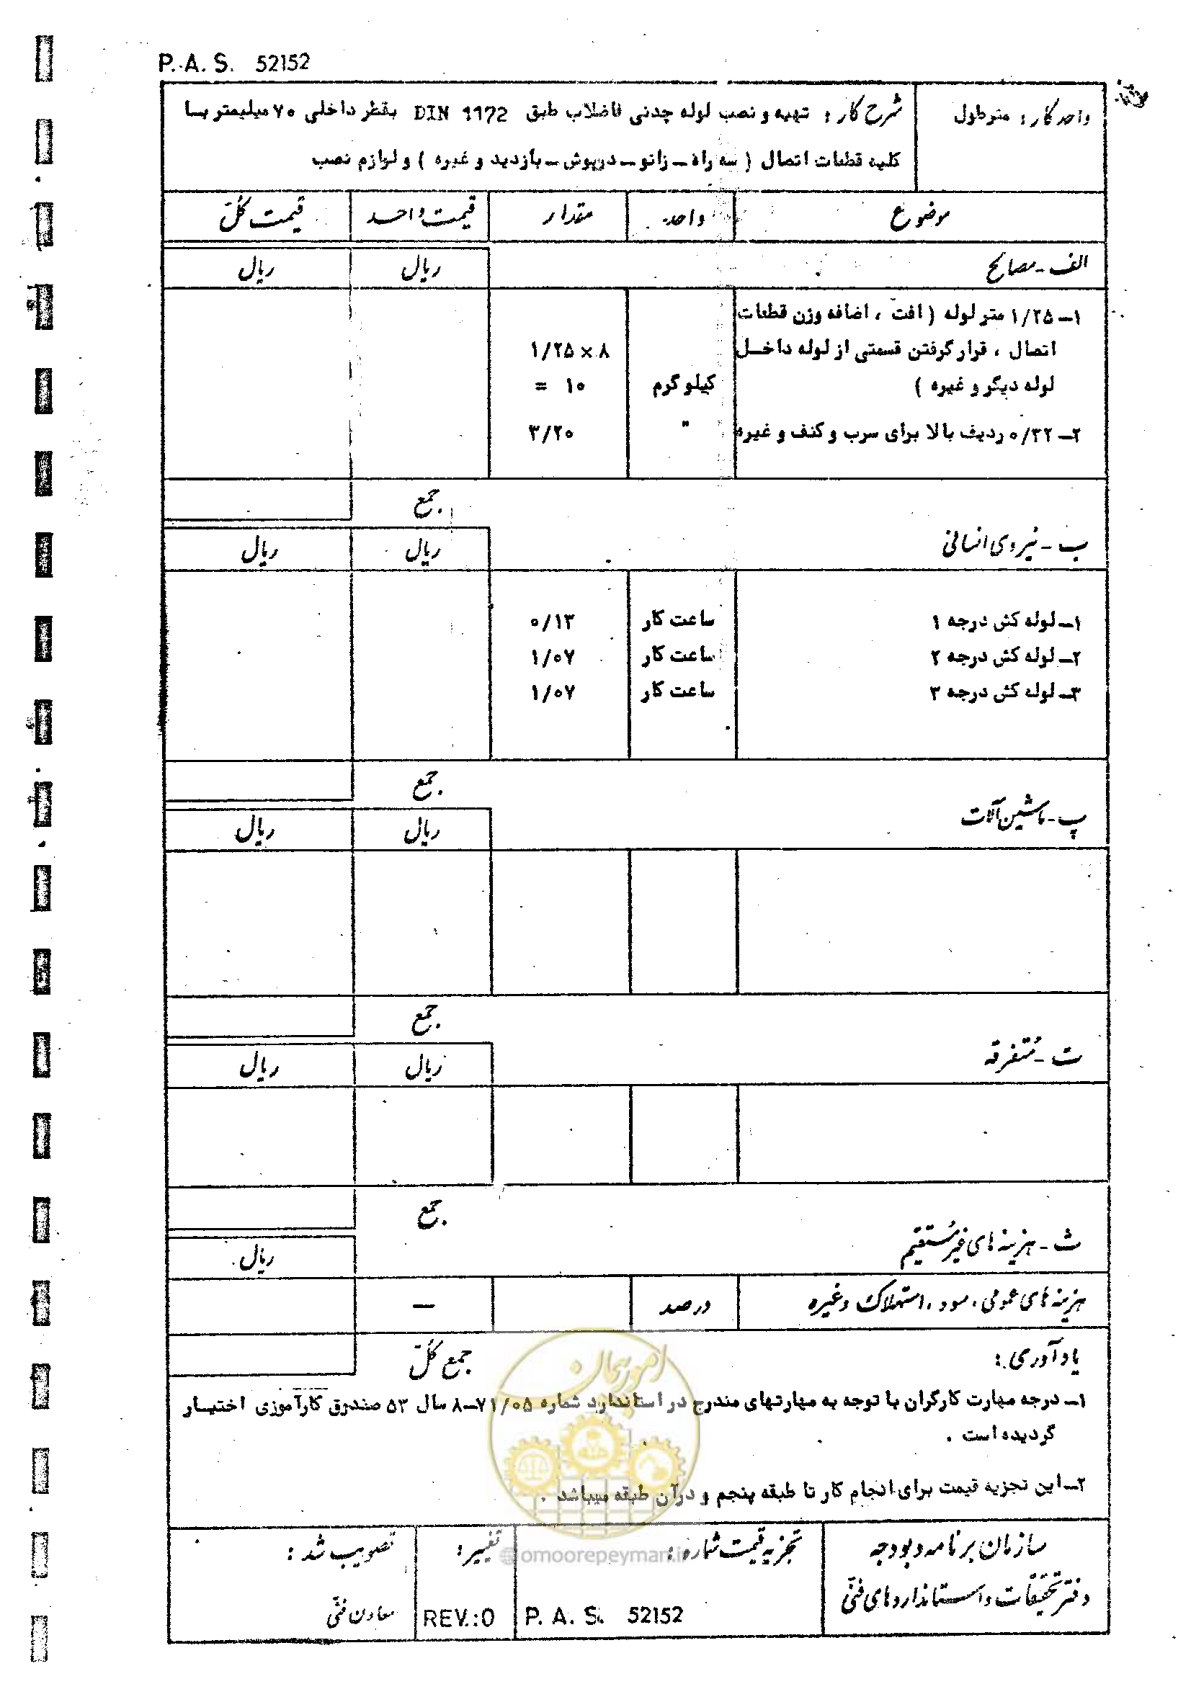 P.A.S. 52152
واحد کار : متر طول
شرح کار : تهیه و نصب لوله چدنی فاضلاب طبق DIN 1172 بقطر داخلی ۷۰ میلیمتر با
کلیه قطعات اتصال ( سه راه ــ زانو ــ درپوش ــ بازدید و غیره ) و لوازم نصب
موضوع واحد مقدار قیمت واحد قیمت کُلّ
الف - مصالح ریال ریال
۱ــ ۱/۲۵ متر لوله ( افت ، اضافه وزن قطعات
اتصال ، قرار گرفتن قسمتی از لوله داخــل ۱/۲۵ × ۸
لوله دیگر و غیره ) کیلو گرم = ۱۰
۲ــ ۰/۳۲ ردیف بالا برای سرب و کنف و غیره " ۳/۲۰
جمع
ب - نیروی انسانی ریال ریال
۱ــ لوله کش درجه ۱ ساعت کار ۰/۱۳
۲ــ لوله کش درجه ۲ ساعت کار ۱/۰۷
۳ــ لوله کش درجه ۳ ساعت کار ۱/۰۷
جمع
پ - ماشین آلات ریال ریال
جمع
ت - مُتفرقه ریال ریال
جمع
ث - هزینه های غیرمُستقیم ریال
هزینه های عمومی ، سود ، استهلاک و غیره درصد —
یادآوری : جمع کُلّ
۱ــ درجه مهارت کارگران با توجه به مهارتهای مندرج در استاندارد شماره ۷۱/۰۵ــ۸ سال ۵۳ صندوق کارآموزی اختیــار
گردیده است .
۲ــ این تجزیه قیمت برای انجام کار تا طبقه پنجم و درآن طبقه میباشد .
امور پیمان
@omoorepeyman.ir
سازمان برنامه و بودجه
دفتر تحقیقات و استانداردهای فنّی
تجزیه قیمت شماره :
P. A. S. 52152
تغییر :
REV.:0
تصویب شد :
معاون فنّی